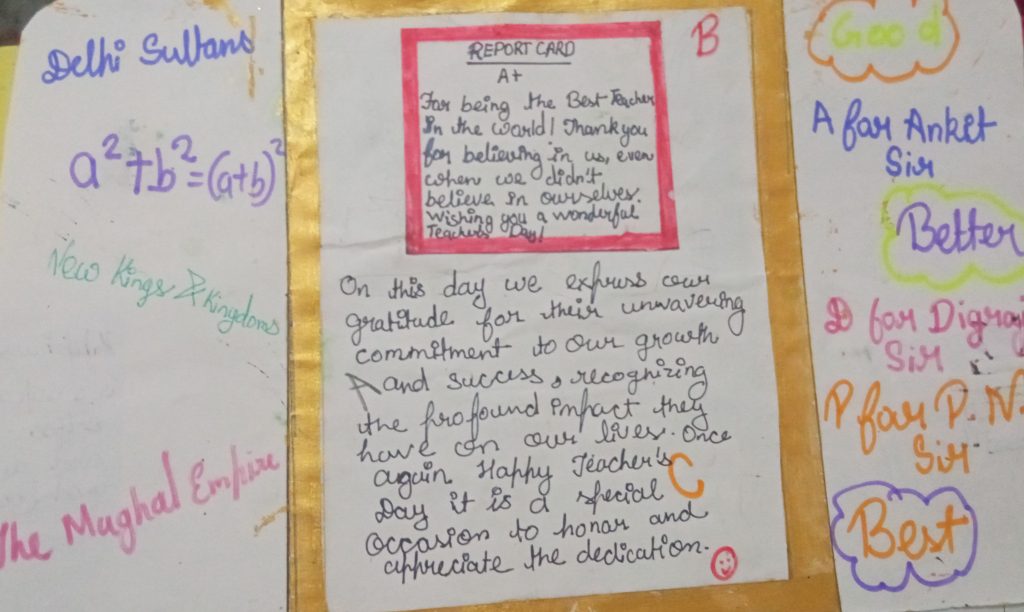 Delhi Sultans
a²+b²=(a+b)²
New Kings & Kingdoms
The Mughal Empire
B
REPORT CARD
A+
For being the Best Teacher
in the world! Thank you
for believing in us, even
when we didn't
believe in ourselves.
Wishing you a wonderful
Teachers Day!
On this day we express our
gratitude for their unwavering
commitment to our growth
A and success, recognizing
the profound impact they
have on our lives. Once
again Happy Teacher's
C
Day it is a special
occasion to honor and
appreciate the dedication.
Good
A for Ankit
Sir
Better
D for Digraj
Sir
P for P. N.
Sir
Best